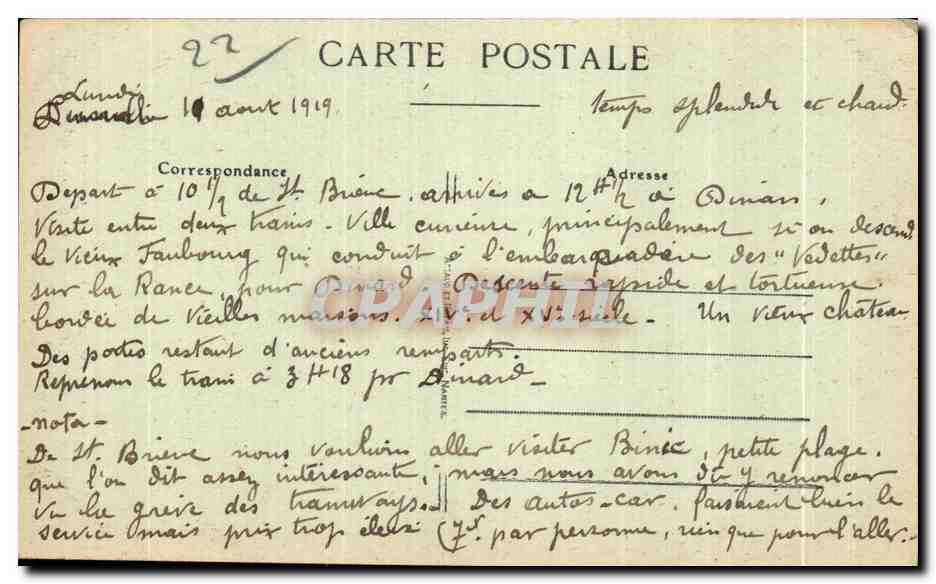 22
CARTE POSTALE
Lundi 11 aout 1919.
temps splendide et chaud.
Correspondance
Adresse
Depart à 10 1/2 de St. Brieuc. arrivés à 12 H 1/2 à Dinan.
Visite entre deux trains. Ville curieuse, principalement si on descend
le vieux Faubourg qui conduit à l'embarquadère des "Vedettes"
sur la Rance, pour Dinard. Descente rapide et tortueuse
bordée de vieilles maisons. XIVe. et XVe. siècle - Un vieux château
CPAPHIL
Des portes restant d'anciens remparts.
Reprenons le train à 3 H 18 pr Dinard -
- nota -
De St. Brieuc nous voulions aller visiter Binic, petite plage.
que l'on dit assez intéressante, mais nous avons dû y renoncer
vu la grève des tramways. - Des autos-car. faisaient bien le
service mais prix trop élevé (7f. par personne, rien que pour l'aller. -